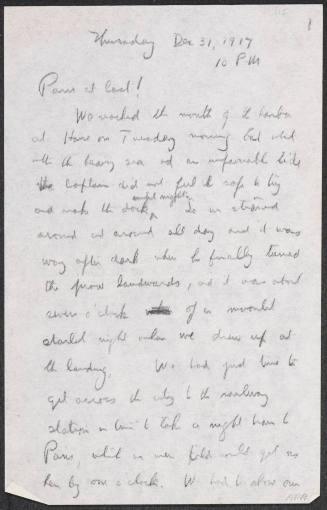 1
Thursday Dec 31, 1917
10 PM
Paris at last!
We reached the mouth of the harbor
at Havre on Tuesday morning but what
with the heavy sea and an unfavorable tide
the Captain did not feel it safe to try
and make the dock until night. So we steamed
around and around all day and it was
way after dark when he finally turned
the prow landwards, and it was about
seven o'clock of a moonlit
starlit night when we drew up at
the landing. We had just time to
get across the city to the railway
station in time to take a night train to
Paris, which we were told would get us
here by one o'clock. We had to show our